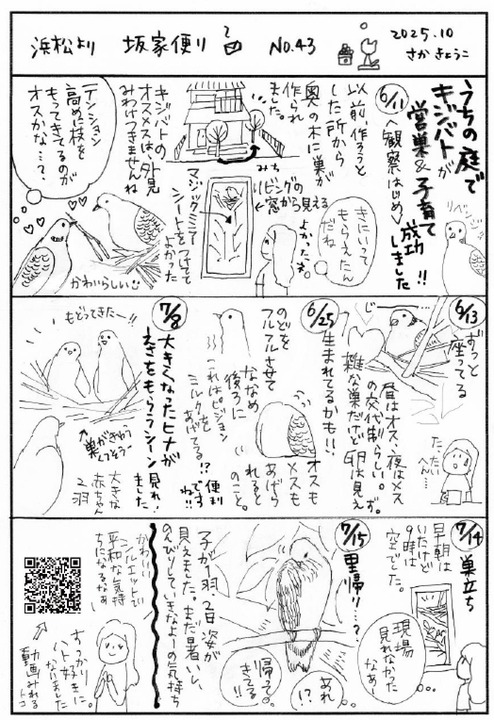 浜松より 坂家便り NO.43
2025.10
さか きょうこ
うちの庭で
キジバトが
営巣&子育て
成功
しました!!
6/11
観察はじめ
リベンジ!
以前作ろうと
した所から
奥の木に巣が
作られ
ました。
みち
リビングの
窓から見える
マジックミラー
シートをつけてて
よかった
きにいって
もらえたん
だね
よかった。
キジバトの
オスメスは、外見
みわけつきませんね
テンション
高めに枝を
もってきてるのが
オスかな…?
かわいらしい
6/13
ずっと
座ってる
じー
昼はオス、夜はメス
の交代制らしい。
雑な巣だけど卵は見えず。
たいへん…
6/25
生まれてるかも!!
のどを
フルフルさせて
ななめ
後ろに
これはピジョン
ミルクを
あげてる!?
オスも
メスも
あげら
れると
のこと。
便利
ですね
7/8
大きくなったヒナが
えさをもらうシーン見れ
ました!
もどってきたー!!
巣がきゅうくつそう
大きな
赤ちゃん
2羽
7/14
巣立ち
早朝は
いたけど
9時は
空でした。
現場
見れなかった
なぁ〜
7/15
里帰り…?
あれ
!?
帰って
きてる!!
子が1羽、2日姿が
見えました。まだ若いし
のんびりしていきなよーの気持ち
かわいい
シルエットで
平和な気持
ちになるなぁ〜
すっかり
ハト好きに
なりました
動画みれる
トコ